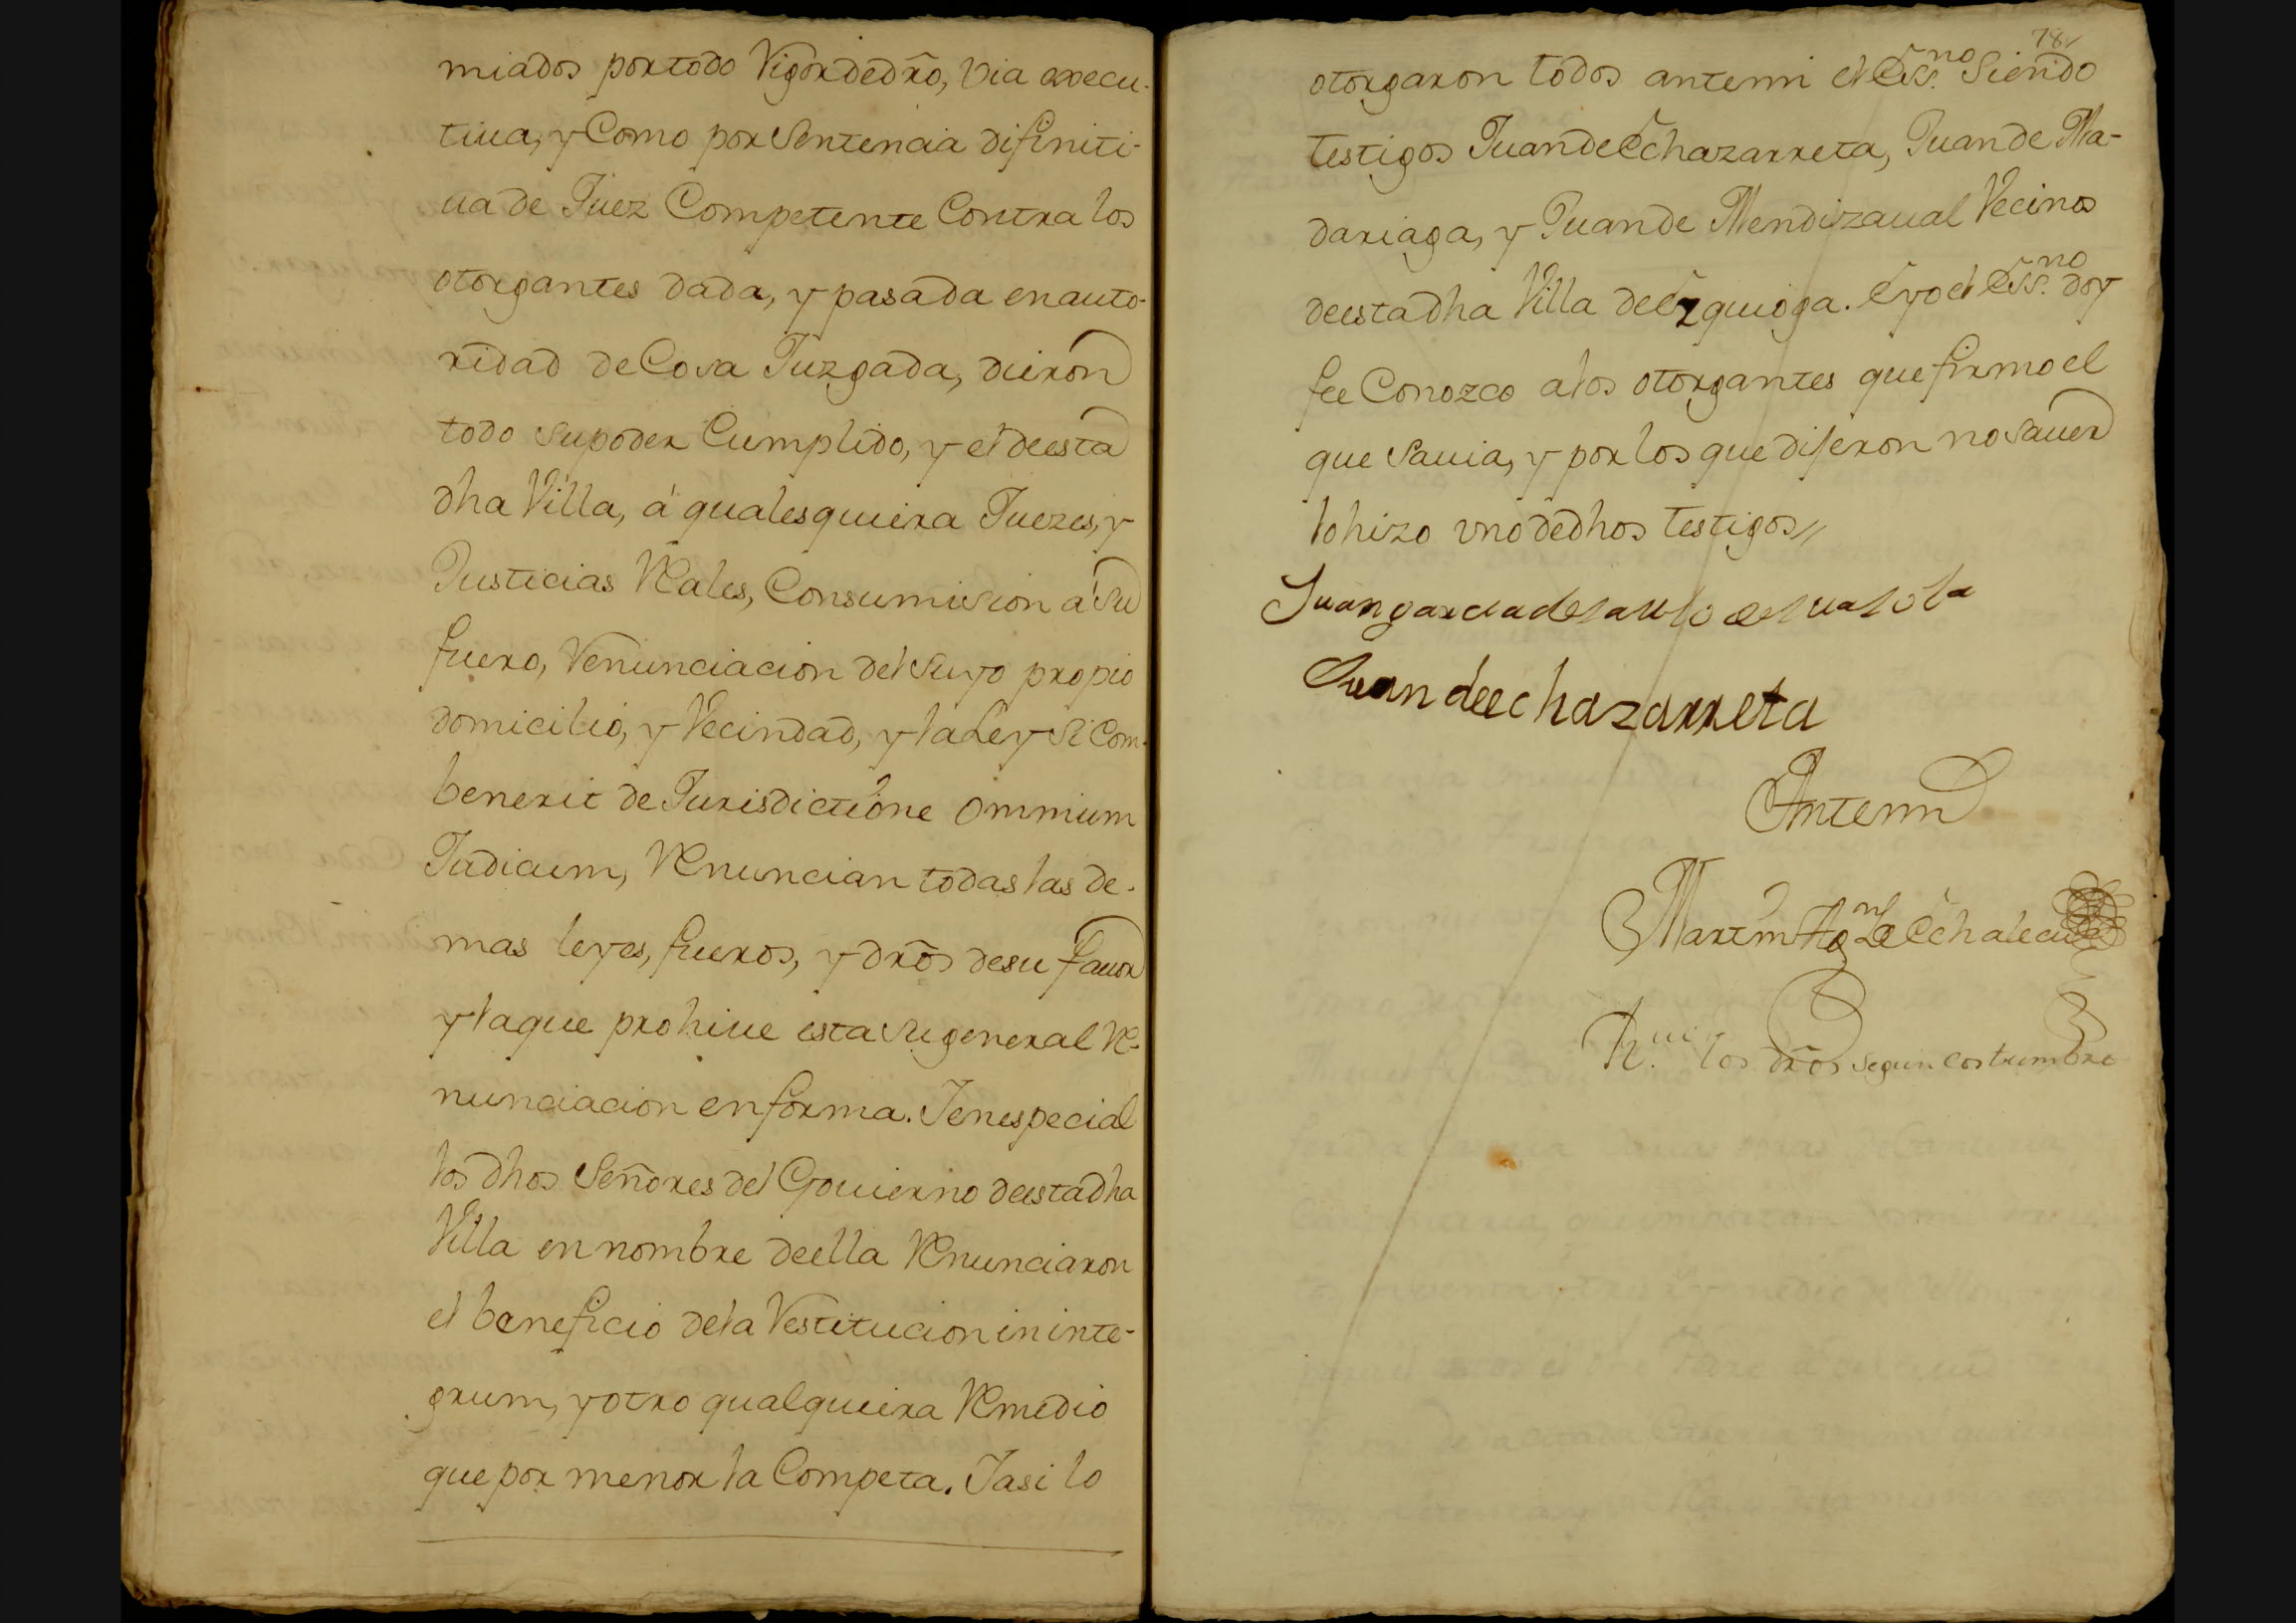 miados por todo Vigor de dr̃o, via execu-
tiua, y Como por Sentencia difiniti-
ua de Juez Competente Contra los
otorgantes dada, y pasada en auto-
ridad de Cosa Juzgada, dieron
todo su poder Cumplido, y el de esta
dha Villa, á qualesquiera Juezes, y
Justicias Rales, Con sumision a su
fuero, Renunciacion del Suyo propio
domicilio, y Vecindad, y la Ley Si Com-
benerit de Jurisdictione omnium
Judicum, Renuncian todas las de-
mas leyes, fueros, y dr̃os de su fauor
y la que prohiue esta su general Re-
nunciacion en forma. Y en especial
los dhos Señores del Gouierno de esta dha
Villa en nombre de ella Renunciaron
el beneficio de la Restitucion in inte-
grum, y otro qualquiera Remedio
que por menor la Competa. Y asi lo
78
otorgaron todos ante mi el Ess.no Siendo
testigos Juan de Echazarreta, Juan de Ma-
dariaga, y Juan de Mendizaual Vecinos
de esta dha Villa de Ezquioga. E yo el Ess.no doy
fee Conozco a los otorgantes que firmo el
que Sauia, y por los que dijeron no sauer
lo hizo vno de dhos testigos//
Juan garcia de
Juan de echazarreta
Ante mi
Martin Ag.n de Echalecu
R.ui los dr̃os segun costumbre